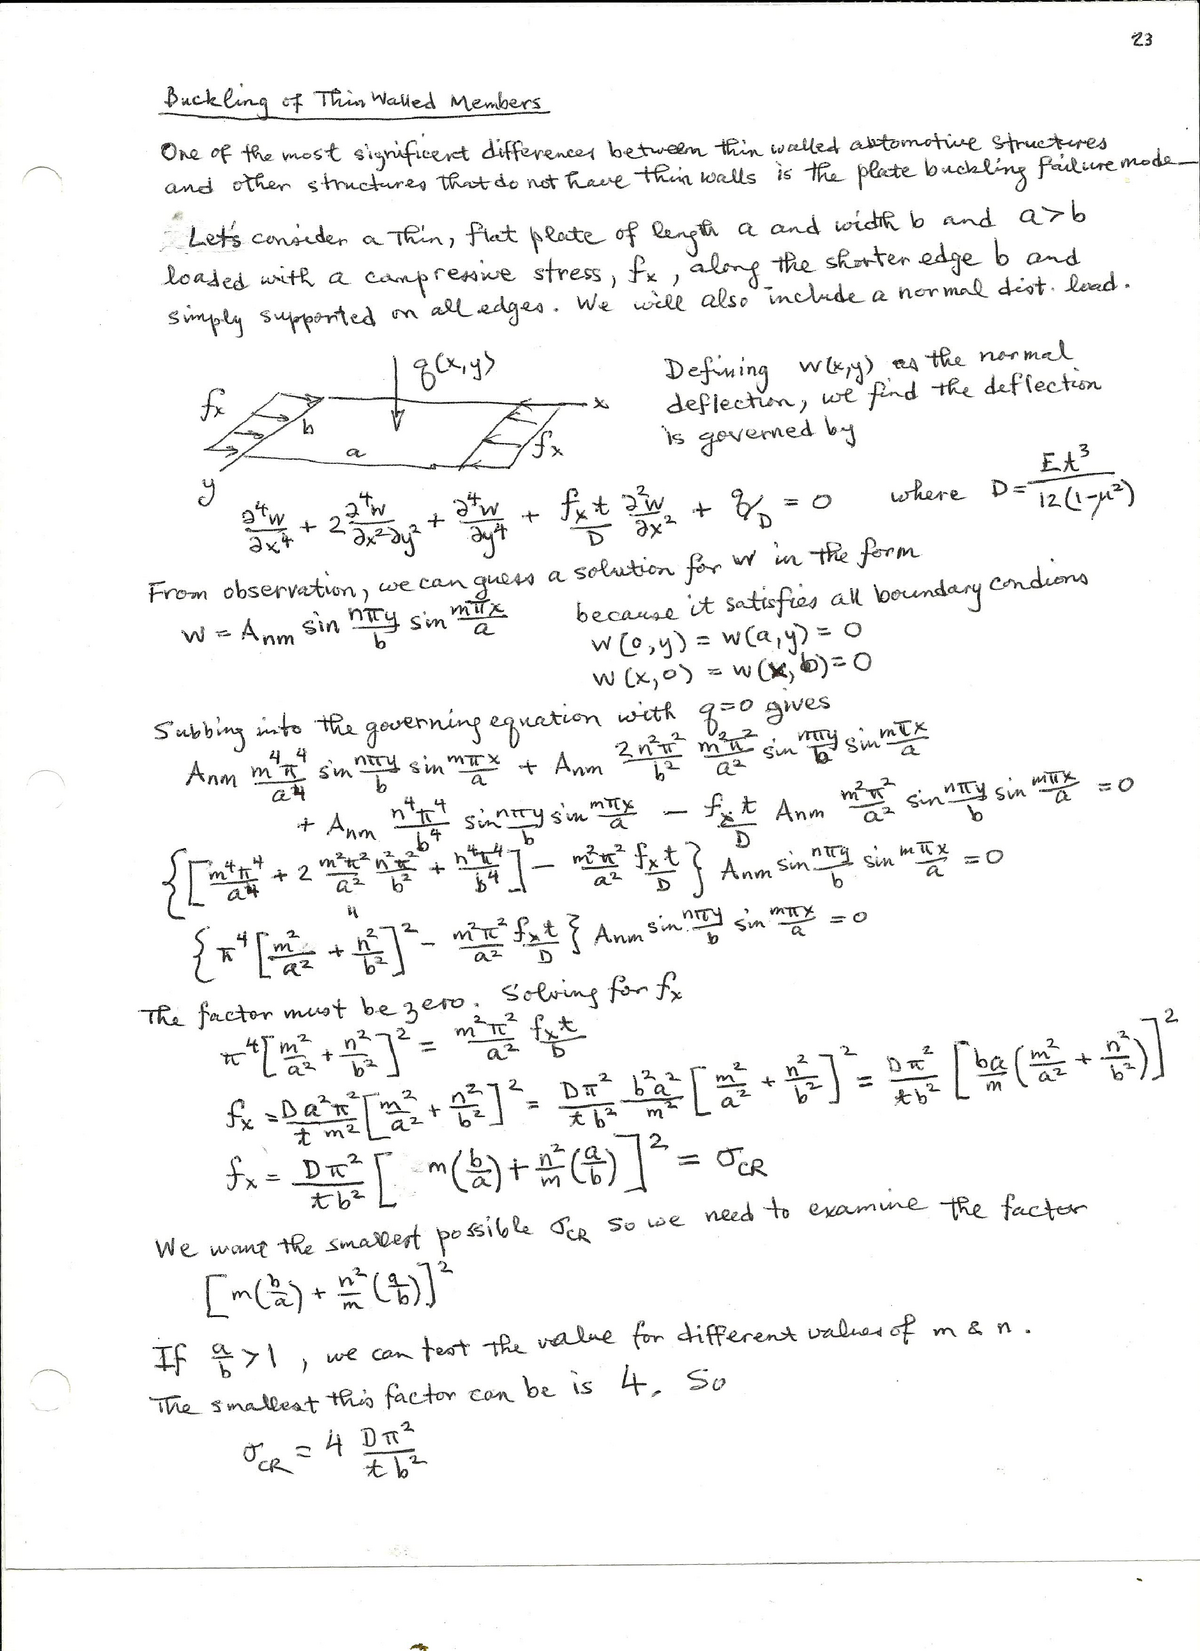 23
Buckling of Thin Walled Members
One of the most significent differences between thin walled automotive structures
and other structures that do not have thin walls is the plate buckling failure mode
Let's consider a thin, flat plate of length a and width b and a>b
loaded with a compressive stress, fx, along the shorter edge b and
simply supported on all edges. We will also include a normal dist. load.
q(x,y)
fx b a x fx
y
Defining w(x,y) as the normal
deflection, we find the deflection
is governed by
∂⁴w/∂x⁴ + 2 ∂⁴w/∂x²∂y² + ∂⁴w/∂y⁴ + fx t/D ∂²w/∂x² + q/D = 0 where D = Et³/12(1-μ²)
From observation, we can guess a solution for w in the form
w = Anm sin nπy/b sin mπx/a because it satisfies all boundary condions
w(0,y) = w(a,y) = 0
w(x,0) = w(x,b) = 0
Subbing into the governing equation with q=0 gives
Anm m⁴π⁴/a⁴ sin nπy/b sin mπx/a + Anm 2n²π²/b² m²π²/a² sin nπy/b sin mπx/a
+ Anm n⁴π⁴/b⁴ sin nπy/b sin mπx/a - fx t/D Anm m²π²/a² sin nπy/b sin mπx/a = 0
{[m⁴π⁴/a⁴ + 2 m²π²/a² n²π²/b² + n⁴π⁴/b⁴] - m²π²/a² fx t/D} Anm sin nπy/b sin mπx/a = 0
"
{π⁴[m²/a² + n²/b²]² - m²π²/a² fx t/D} Anm sin nπy/b sin mπx/a = 0
The factor must be zero. Solving for fx
π⁴[m²/a² + n²/b²]² = m²π²/a² fx t/D
fx = D a²π²/t m² [m²/a² + n²/b²]² = Dπ²/tb² b²a²/m² [m²/a² + n²/b²]² = Dπ²/tb² [ba/m (m²/a² + n²/b²)]²
fx = Dπ²/tb² [m(b/a) + n²/m (a/b)]² = σCR
We want the smallest possible σCR so we need to examine the factor
[m(b/a) + n²/m (a/b)]²
If a/b > 1, we can test the value for different values of m & n.
The smallest this factor can be is 4. So
σCR = 4 Dπ²/tb²